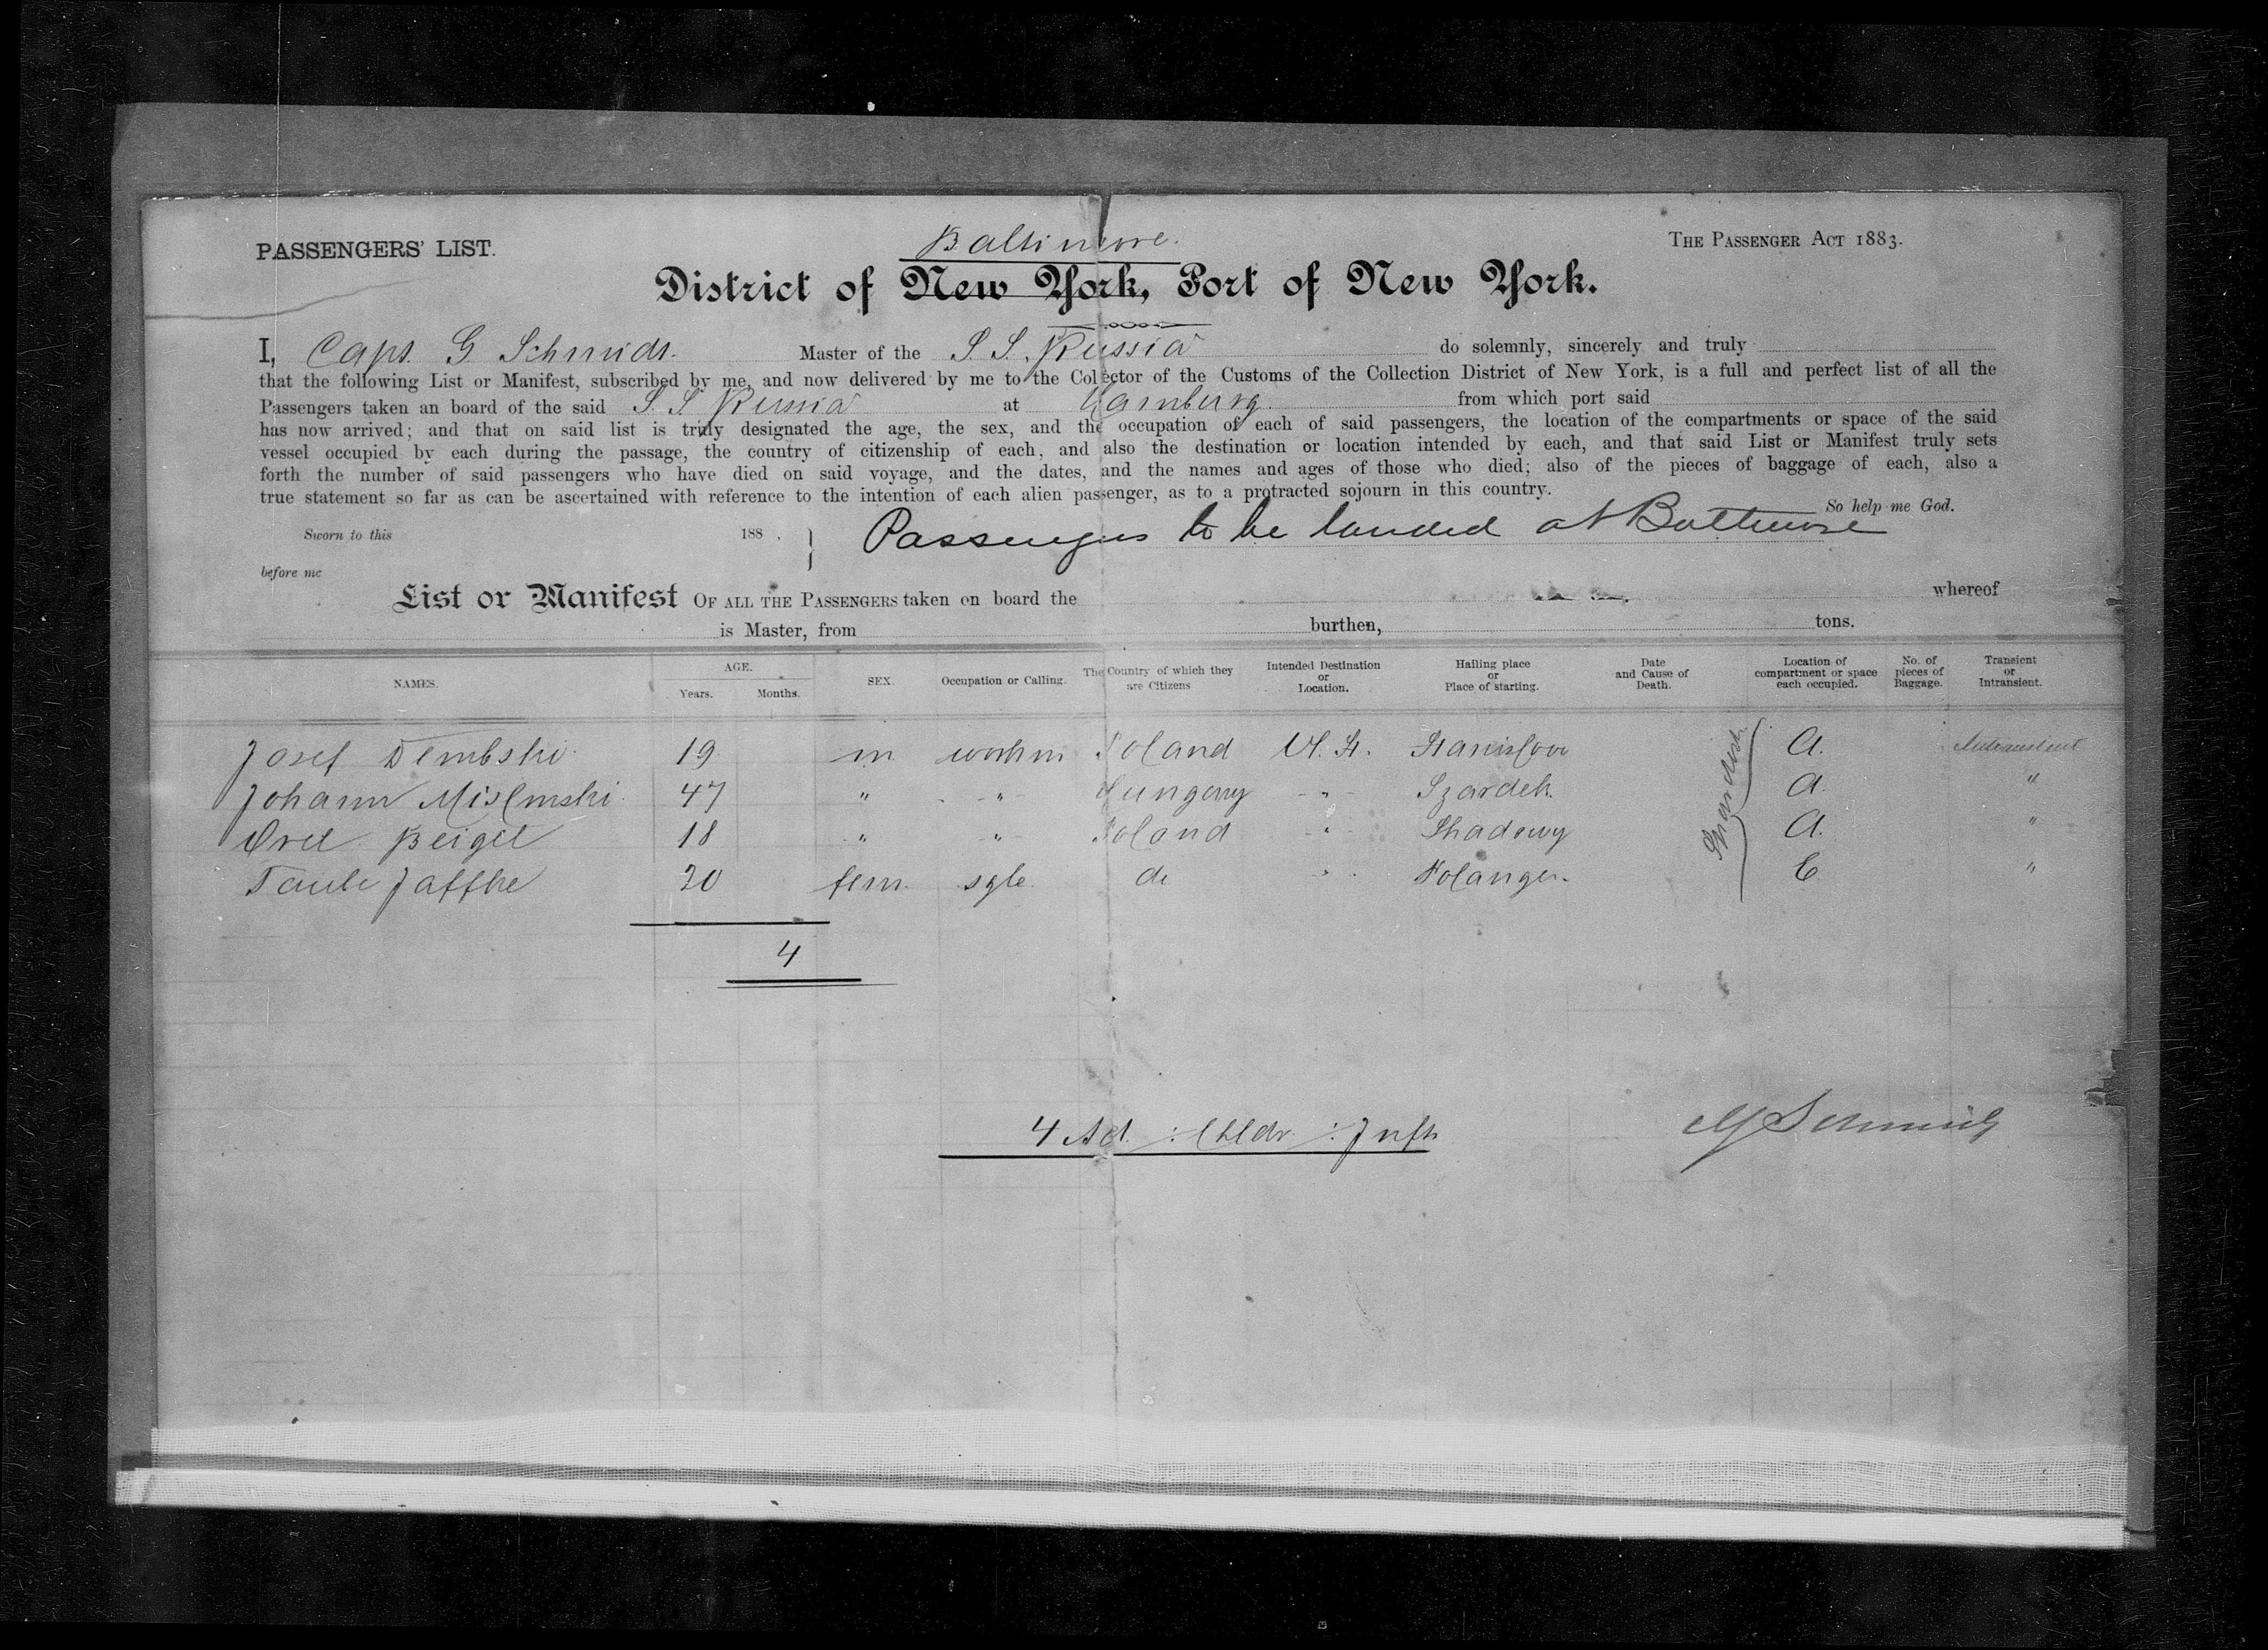 Baltimore.
PASSENGERS' LIST.
THE PASSENGER ACT 1883.
District of New York, Port of New York.
I, Capt. G Schmidt. Master of the S.S. Russia do solemnly, sincerely and truly
that the following List or Manifest, subscribed by me, and now delivered by me to the Collector of the Customs of the Collection District of New York, is a full and perfect list of all the
Passengers taken an board of the said S.S. Russia at Hamburg. from which port said
has now arrived; and that on said list is truly designated the age, the sex, and the occupation of each of said passengers, the location of the compartments or space of the said
vessel occupied by each during the passage, the country of citizenship of each, and also the destination or location intended by each, and that said List or Manifest truly sets
forth the number of said passengers who have died on said voyage, and the dates, and the names and ages of those who died; also of the pieces of baggage of each, also a
true statement so far as can be ascertained with reference to the intention of each alien passenger, as to a protracted sojourn in this country.
So help me God.
Sworn to this 188 . Passengers to be landed at Baltimore
before me
List or Manifest OF ALL THE PASSENGERS taken on board the whereof
is Master, from burthen, tons.
NAMES. AGE. Years. Months. SEX. Occupation or Calling. The Country of which they are Citizens Intended Destination or Location. Hailing place or Place of starting. Date and Cause of Death. Location of compartment or space each occupied. No. of pieces of Baggage. Transient or Intransient.
Josef Dembski. 19 m workm Poland U. St. Stanislow A. Intransient
Johann 47 " " Hungary " Szardek. A. "
Beigel 18 " " Poland " Shadowy A. "
Taube Jaffke 20 fem. sgle. do " Polangen. C "
4
4 Ad. : Chldr : Infts
G Schmidt